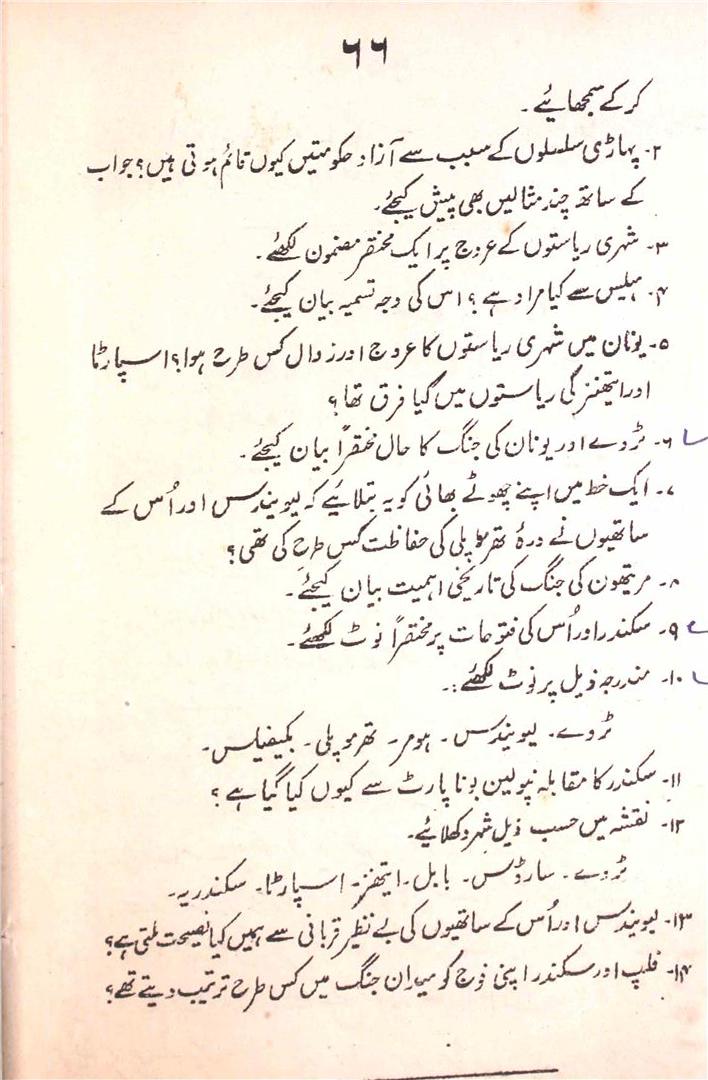 ۶۶
کر کے سمجھائیے۔
۲۔ پہاڑی سلسلوں کے سبب سے آزاد حکومتیں کیوں قائم ہوتی ہیں؟ جواب
کے ساتھ چند مثالیں بھی پیش کیجئے۔
۳۔ شہری ریاستوں کے عروج پر ایک مختصر مضمون لکھئے۔
۴۔ ہیلس سے کیا مراد ہے؟ اس کی وجہ تسمیہ بیان کیجئے۔
۵۔ یونان میں شہری ریاستوں کا عروج اور زوال کس طرح ہوا؟ اسپارٹا
اور ایتھنز کی ریاستوں میں کیا فرق تھا؟
۶۔ ٹروے اور یونان کی جنگ کا حال مختصراً بیان کیجئے۔
۷۔ ایک خط میں اپنے چھوٹے بھائی کو یہ بتلائیے کہ لیونیڈس اور اُس کے
ساتھیوں نے درۂ تھرموپلی کی حفاظت کس طرح کی تھی؟
۸۔ مریتھون کی جنگ کی تاریخی اہمیت بیان کیجئے۔
۹۔ سکندر اور اُس کی فتوحات پر مختصراً نوٹ لکھئے۔
۱۰۔ مندرجہ ذیل پر نوٹ لکھئے:۔
ٹروے۔ لیونیڈس۔ ہومر۔ تھرموپلی۔
۱۱۔ سکندر کا مقابلہ نپولین بوناپارٹ سے کیوں کیا گیا ہے؟
۱۲۔ نقشہ میں حسب ذیل شہر دکھلائیے۔
ٹروے۔ سارڈس۔ بابل۔ ایتھنز۔ اسپارٹا۔ سکندریہ۔
۱۳۔ لیونیڈس اور اُس کے ساتھیوں کی بے نظیر قربانی سے ہمیں کیا نصیحت ملتی ہے؟
۱۴۔ فلپ اور سکندر اپنی فوج کو میدان جنگ میں کس طرح ترتیب دیتے تھے؟